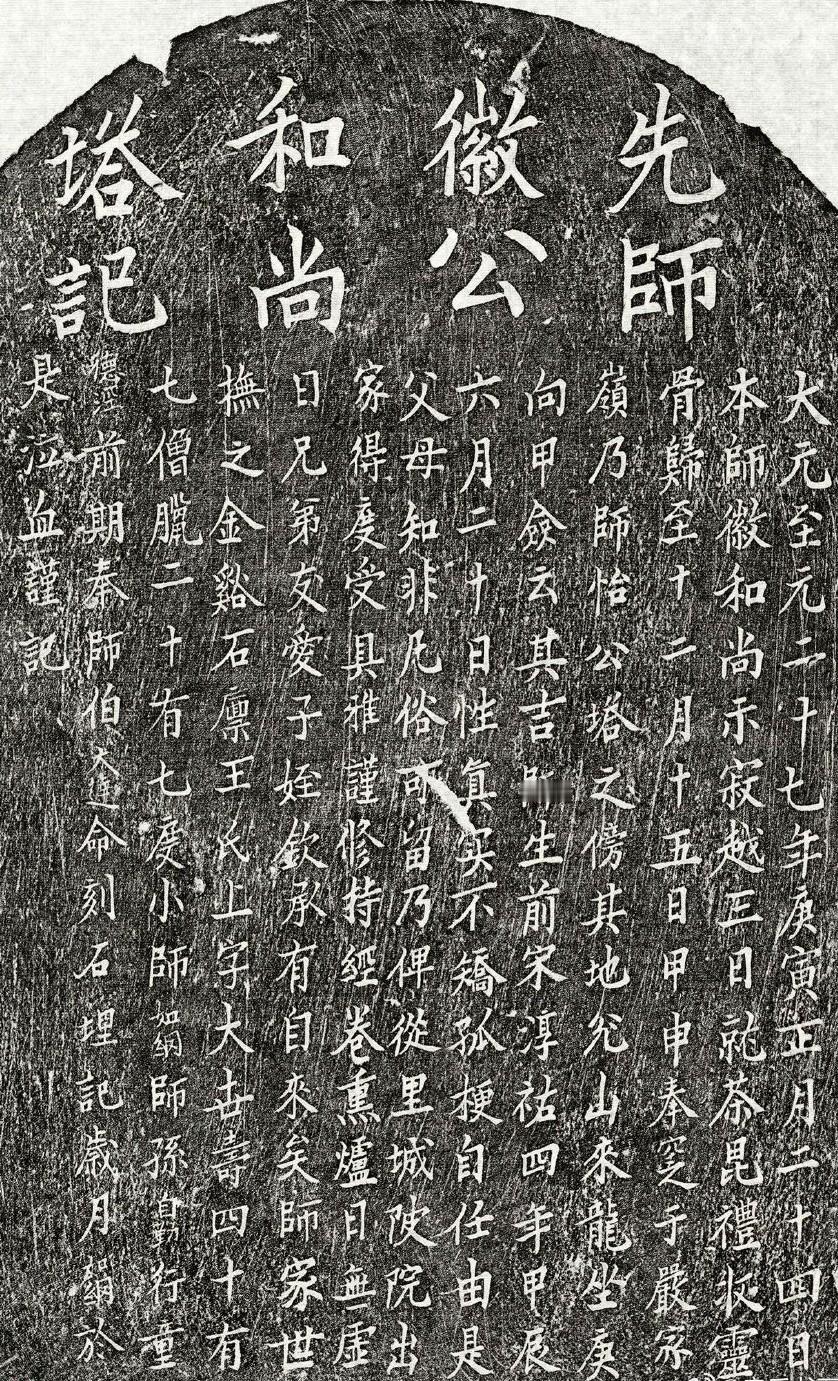 先師
徽公
和尚
塔記
大元至元二十七年庚寅正月二十四日
本師徽和尚示寂越三日就茶昆禮收靈
骨歸至十二月十五日甲申奉窆于嚴家
嶺乃師怡公塔之傍其地兊山來龍坐庚
向甲僉云其吉生前宋淳祐四年甲辰
六月二十日性真实不矯孤梗自任由是
父母知非凡俗可留乃俾從里城陂院出
家得度受具雅謹修持經卷熏爐日無虛
日兄弟友愛子姪欽承有自來矣師家世
撫之金谿石廪王氏上字大世壽四十有
七僧臘二十有七度小師如綱師孫自勤行童
前期奉師伯大達命刻石埋記歲月綱於
是泣血謹記